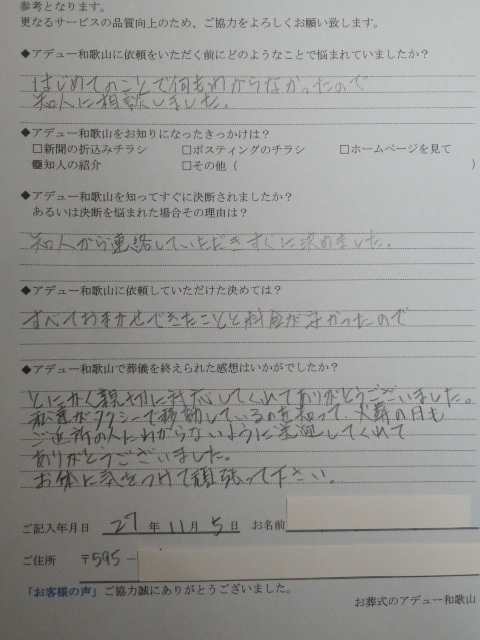 参考となります。
更なるサービスの品質向上のため、ご協力をよろしくお願い致します。
◆アデュー和歌山に依頼をいただく前にどのようなことで悩まれていましたか?
はじめてのことで何もわからなかったので
知人に相談しました。
◆アデュー和歌山をお知りになったきっかけは?
□新聞の折込みチラシ □ポスティングのチラシ □ホームページを見て
☑知人の紹介 □その他( )
◆アデュー和歌山を知ってすぐに決断されましたか?
あるいは決断を悩まれた場合その理由は?
知人から連絡していただきすぐに決めました。
◆アデュー和歌山に依頼していただけた決めては?
すべておまかせできたことと料金が安かったので
◆アデュー和歌山で葬儀を終えられた感想はいかがでしたか?
とにかく親切に対応してくれてありがとうございました。
私達がタクシーで移動しているのを知って、火葬の日も
ご近所の人にわからないように送迎してくれて
ありがとうございました。
お体に気をつけて頑張って下さい。
ご記入年月日 27年11月5日 お名前
ご住所 〒595-
「お客様の声」ご協力誠にありがとうございました。
お葬式のアデュー和歌山